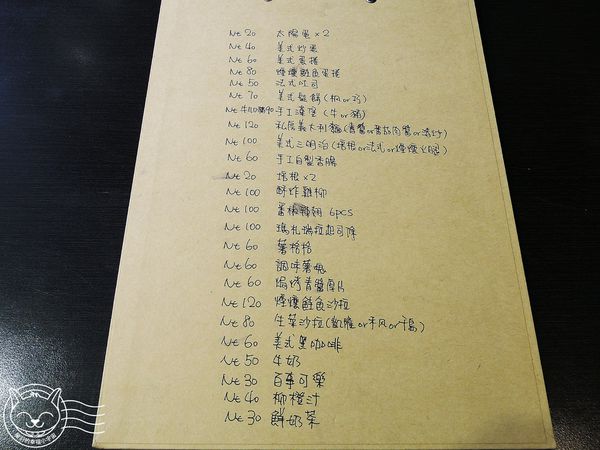 Nt 20 太陽蛋 x2
Nt 40 美式炒蛋
Nt 60 美式蛋捲
Nt 80 煙燻鮭魚蛋捲
Nt 50 法式吐司
Nt 70 美式鬆餅 (楓or巧)
Nt 牛110豬90 手工漢堡 (牛or豬)
Nt 120 私房義大利麵 (青醬or蕃茄肉醬or清炒)
Nt 100 美式三明治 (培根or法式or煙燻火腿)
Nt 60 手工自製香腸
Nt 20 培根 x2
Nt 100 酥炸雞柳
Nt 100 辣翅 6pcs
Nt 100 瑪札瑞拉起司條
Nt 60 薯格格
Nt 60 調味薯塊
Nt 60 焗烤青醬
Nt 120 煙燻鮭魚沙拉
Nt 80 生菜沙拉 (凱薩or和风or千島)
Nt 60 美式黑咖啡
Nt 50 牛奶
Nt 30 百事可樂
Nt 40 柳橙汁
Nt 30 鮮奶茶